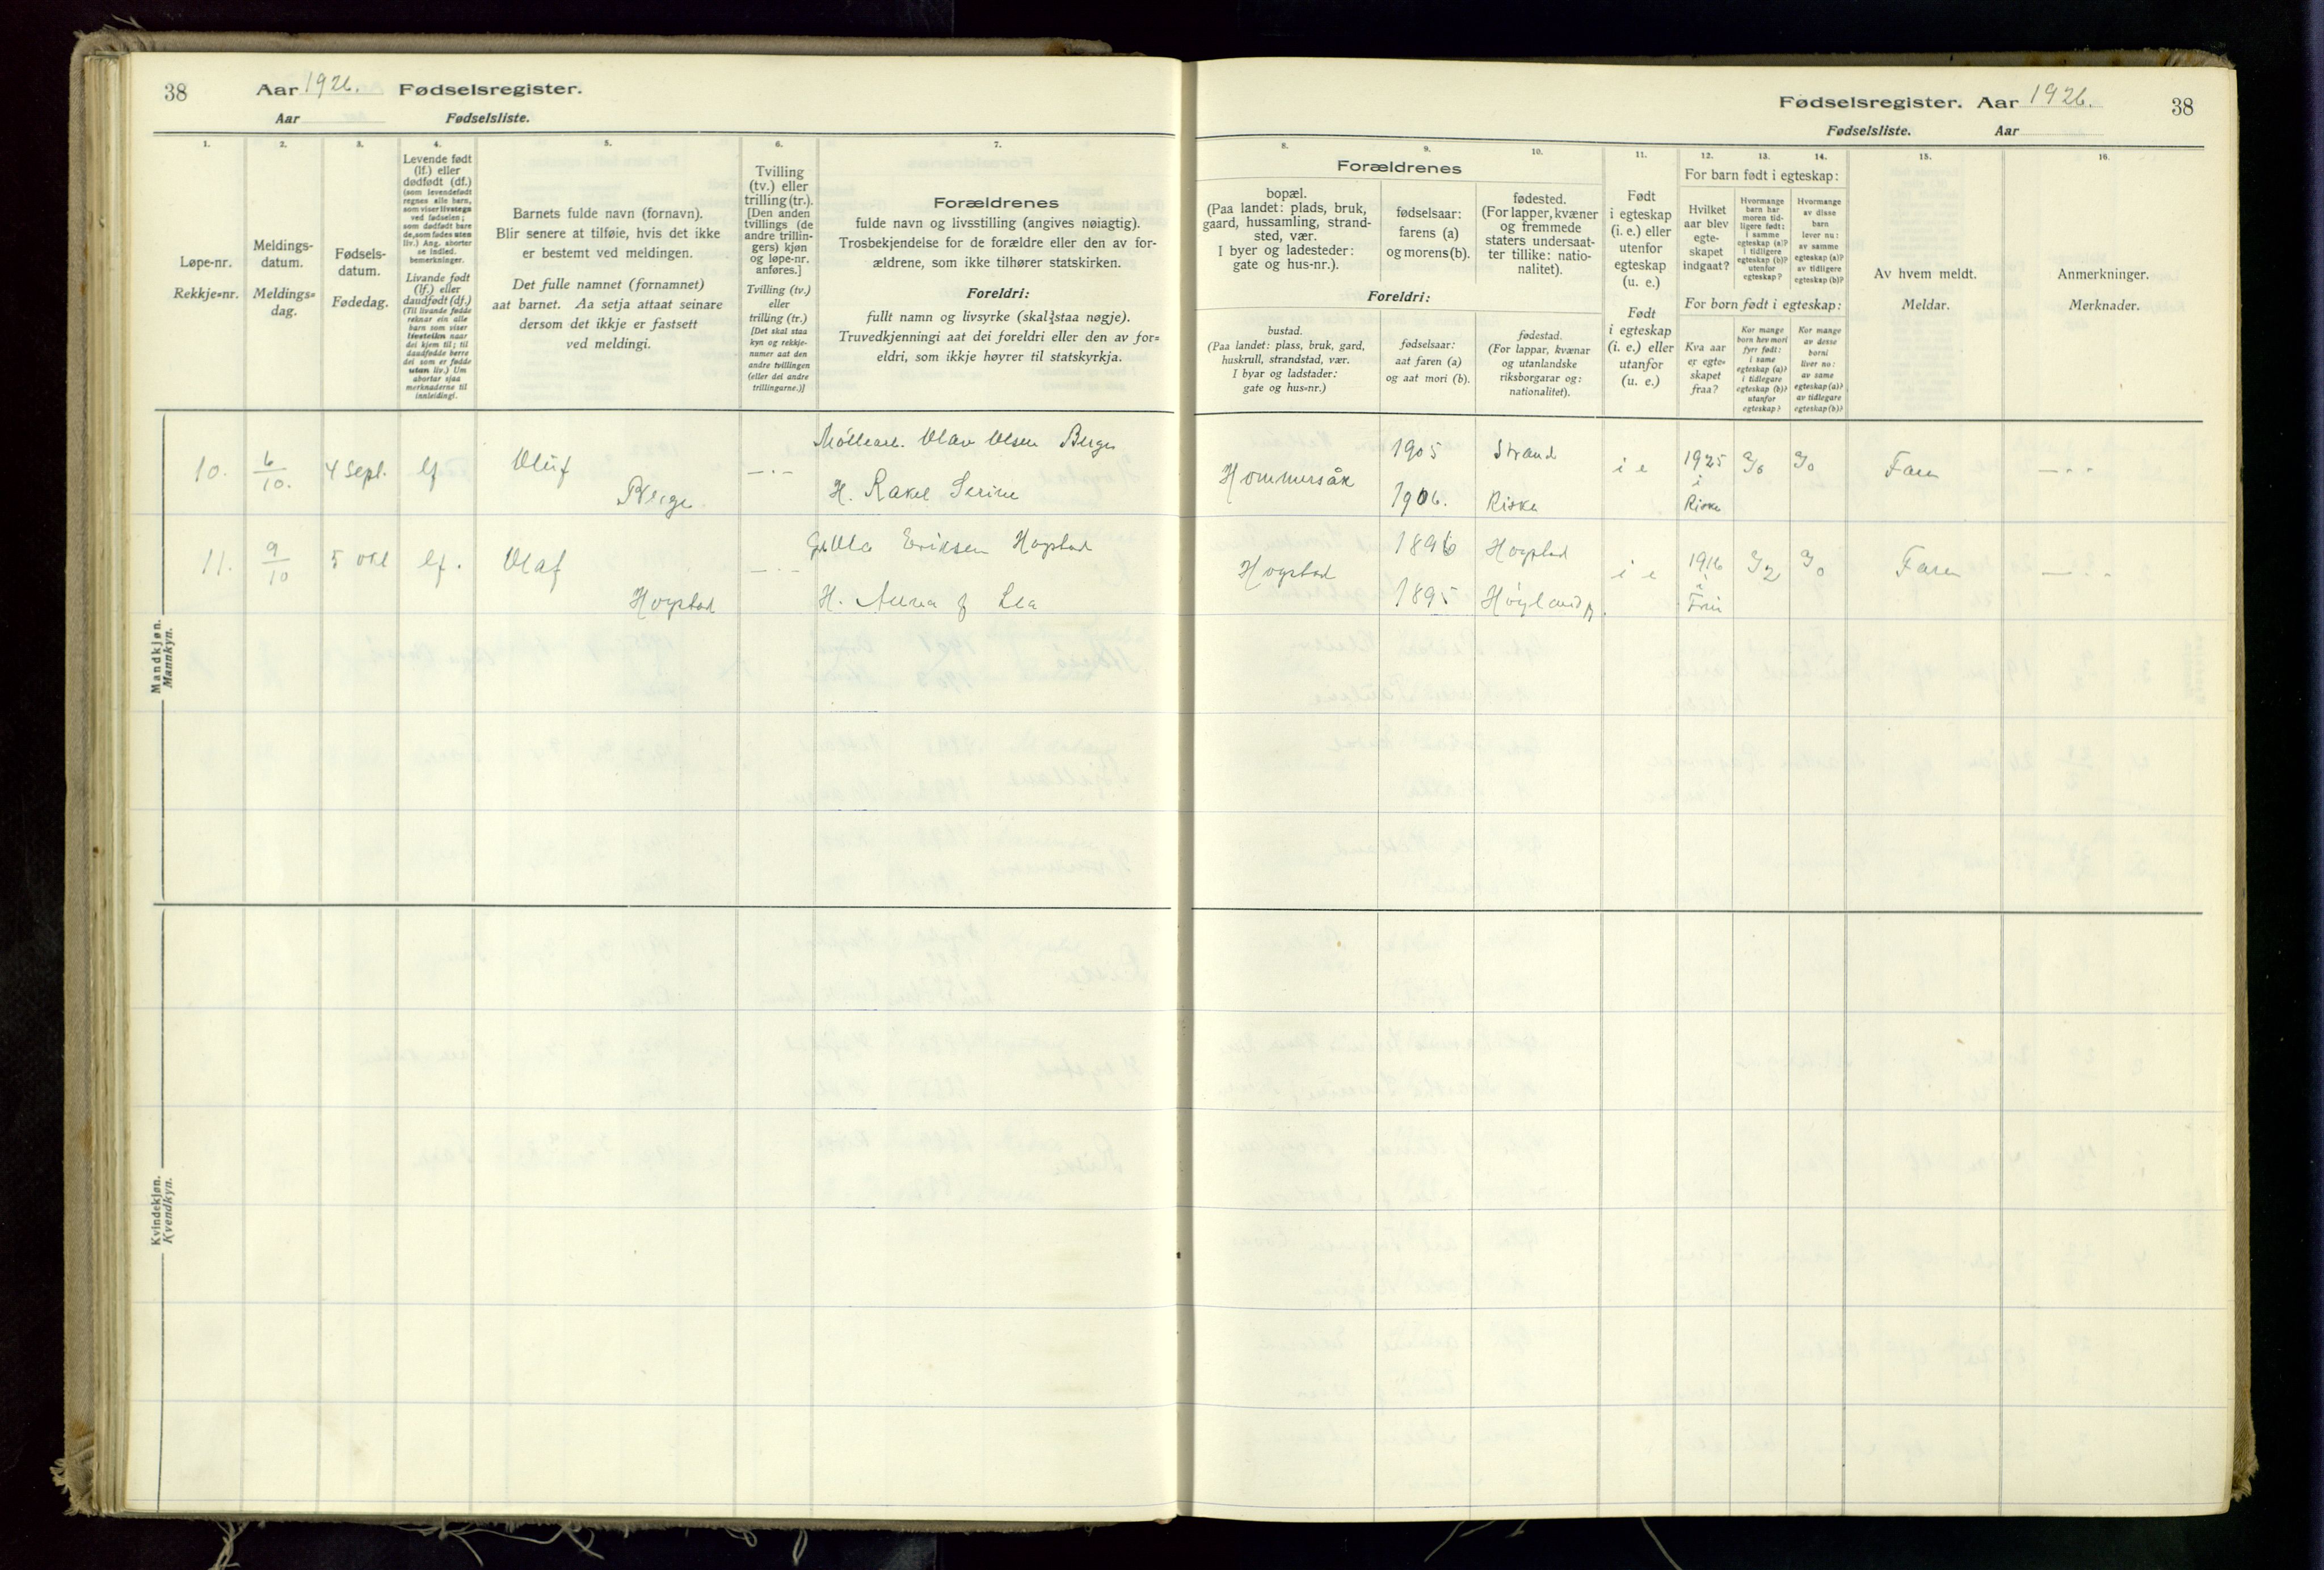 38
Aar 1926. Fødselsregister.
Aar Fødselsliste.
1.
Løpe-nr.
Rekkje=nr.
2.
Meldings-
datum.
Meldings=
dag.
3.
Fødsels-
datum.
Fødedag.
4.
Levende født
(lf.) eller
dødfødt (df.)
(som levendefødt
regnes alle barn,
som viser livstegn
ved fødselen;
som dødfødt bare
de, som fødes uten
liv.) Ang. aborter
se indled.
bemerkninger.
Livande født
(lf.) eller
daudfødt (df.)
(Til livande fødde
reknar ein alle
barn som viser
livsteikn naar
dei kjem til; til
daudfødde berre
dei som er fødde
utan liv.) Um
abortar sjaa
merknaderne til
innleidingi.
5.
Barnets fulde navn (fornavn).
Blir senere at tilføie, hvis det ikke
er bestemt ved meldingen.
Det fulle namnet (fornamnet)
aat barnet. Aa setja attaat seinare
dersom det ikkje er fastsett
ved meldingi.
6.
Tvilling
(tv.) eller
trilling (tr.).
[Den anden
tvillings (de
andre trillin-
gers) kjøn
og løpe-nr.
anføres.]
Tvilling (tv.)
eller
trilling (tr.)
[Det skal staa
kyn og rekkje-
numer aat den
andre tvillingen
(eller dei andre
trillingarne.)]
7.
Forældrenes
fulde navn og livsstilling (angives nøiagtig).
Trosbekjendelse for de forældre eller den av for-
ældrene, som ikke tilhører statskirken.
Foreldri:
fullt namn og livsyrke (skal staa nøgje).
Truvedkjenningi aat dei foreldri eller den av for=
eldri, som ikkje høyrer til statskyrkja.
Mandkjøn.
Mannkyn.
10. 6/10. 4 Sept. lf Oluf Berge — · — Olav Olsen Berge
H. Rakel Serine
11. 9/10 5 okt lf. Olaf Hogstad — · — Eriksen Hogstad
H. Anna f Lea
Kvindekjøn.
Kvendkyn.
Fødselsregister. Aar 1926. 38
Fødselsliste. Aar
8.
Forældrenes
bopæl.
(Paa landet: plads, bruk,
gaard, hussamling, strand-
sted, vær.
I byer og ladesteder:
gate og hus-nr.).
Foreldri:
bustad.
(Paa landet: plass, bruk, gard,
huskrull, strandstad, vær.
I byar og ladstader:
gate og hus-nr.)
9.
fødselsaar:
farens (a)
og morens (b).
fødselsaar:
aat faren (a)
og aat mori (b).
10.
fødested.
(For lapper, kvæner
og fremmede
staters undersaat-
ter tillike: natio-
nalitet).
fødestad.
(For lappar, kvænar
og utanlandske
riksborgarar og:
nationalitet).
11.
Født
i egteskap
(i. e.) eller
utenfor
egteskap
(u. e.)
Født
i egteskap
(i. e.) eller
utanfor
(u. e.)
12.
For barn født i egteskap:
Hvilket
aar blev
egte-
skapet
indgaat?
For born født i egteskap:
Kva aar
er egte-
skapet
fraa?
13.
Hvormange
barn har
moren tid-
ligere født:
i samme
egteskap (a)?
i tidligere
egteskap (b)?
utenfor
egteskap?
Kor mange
born hev mori
fyrr født:
i same
egteskap (a)?
i tidlegare
egteskap (b)?
utanfor
egteskap?
14.
Hvormange
av disse
barn
lever nu:
av samme
egteskap (a)?
av tidligere
egteskap (b)?
Kor mange
av desse
borni
liver no:
av same
egteskap (a)?
av tidlegare
egteskap (b)?
15.
Av hvem meldt.
Meldar.
16.
Anmerkninger.
Merknader.
Hommersåk 1905 Strand i e 1925 i Riska Faren — · ·
1906. Riska
Hogstad 1896 Hogstad i e 1916 i Faren — · ·
1895 Høyland